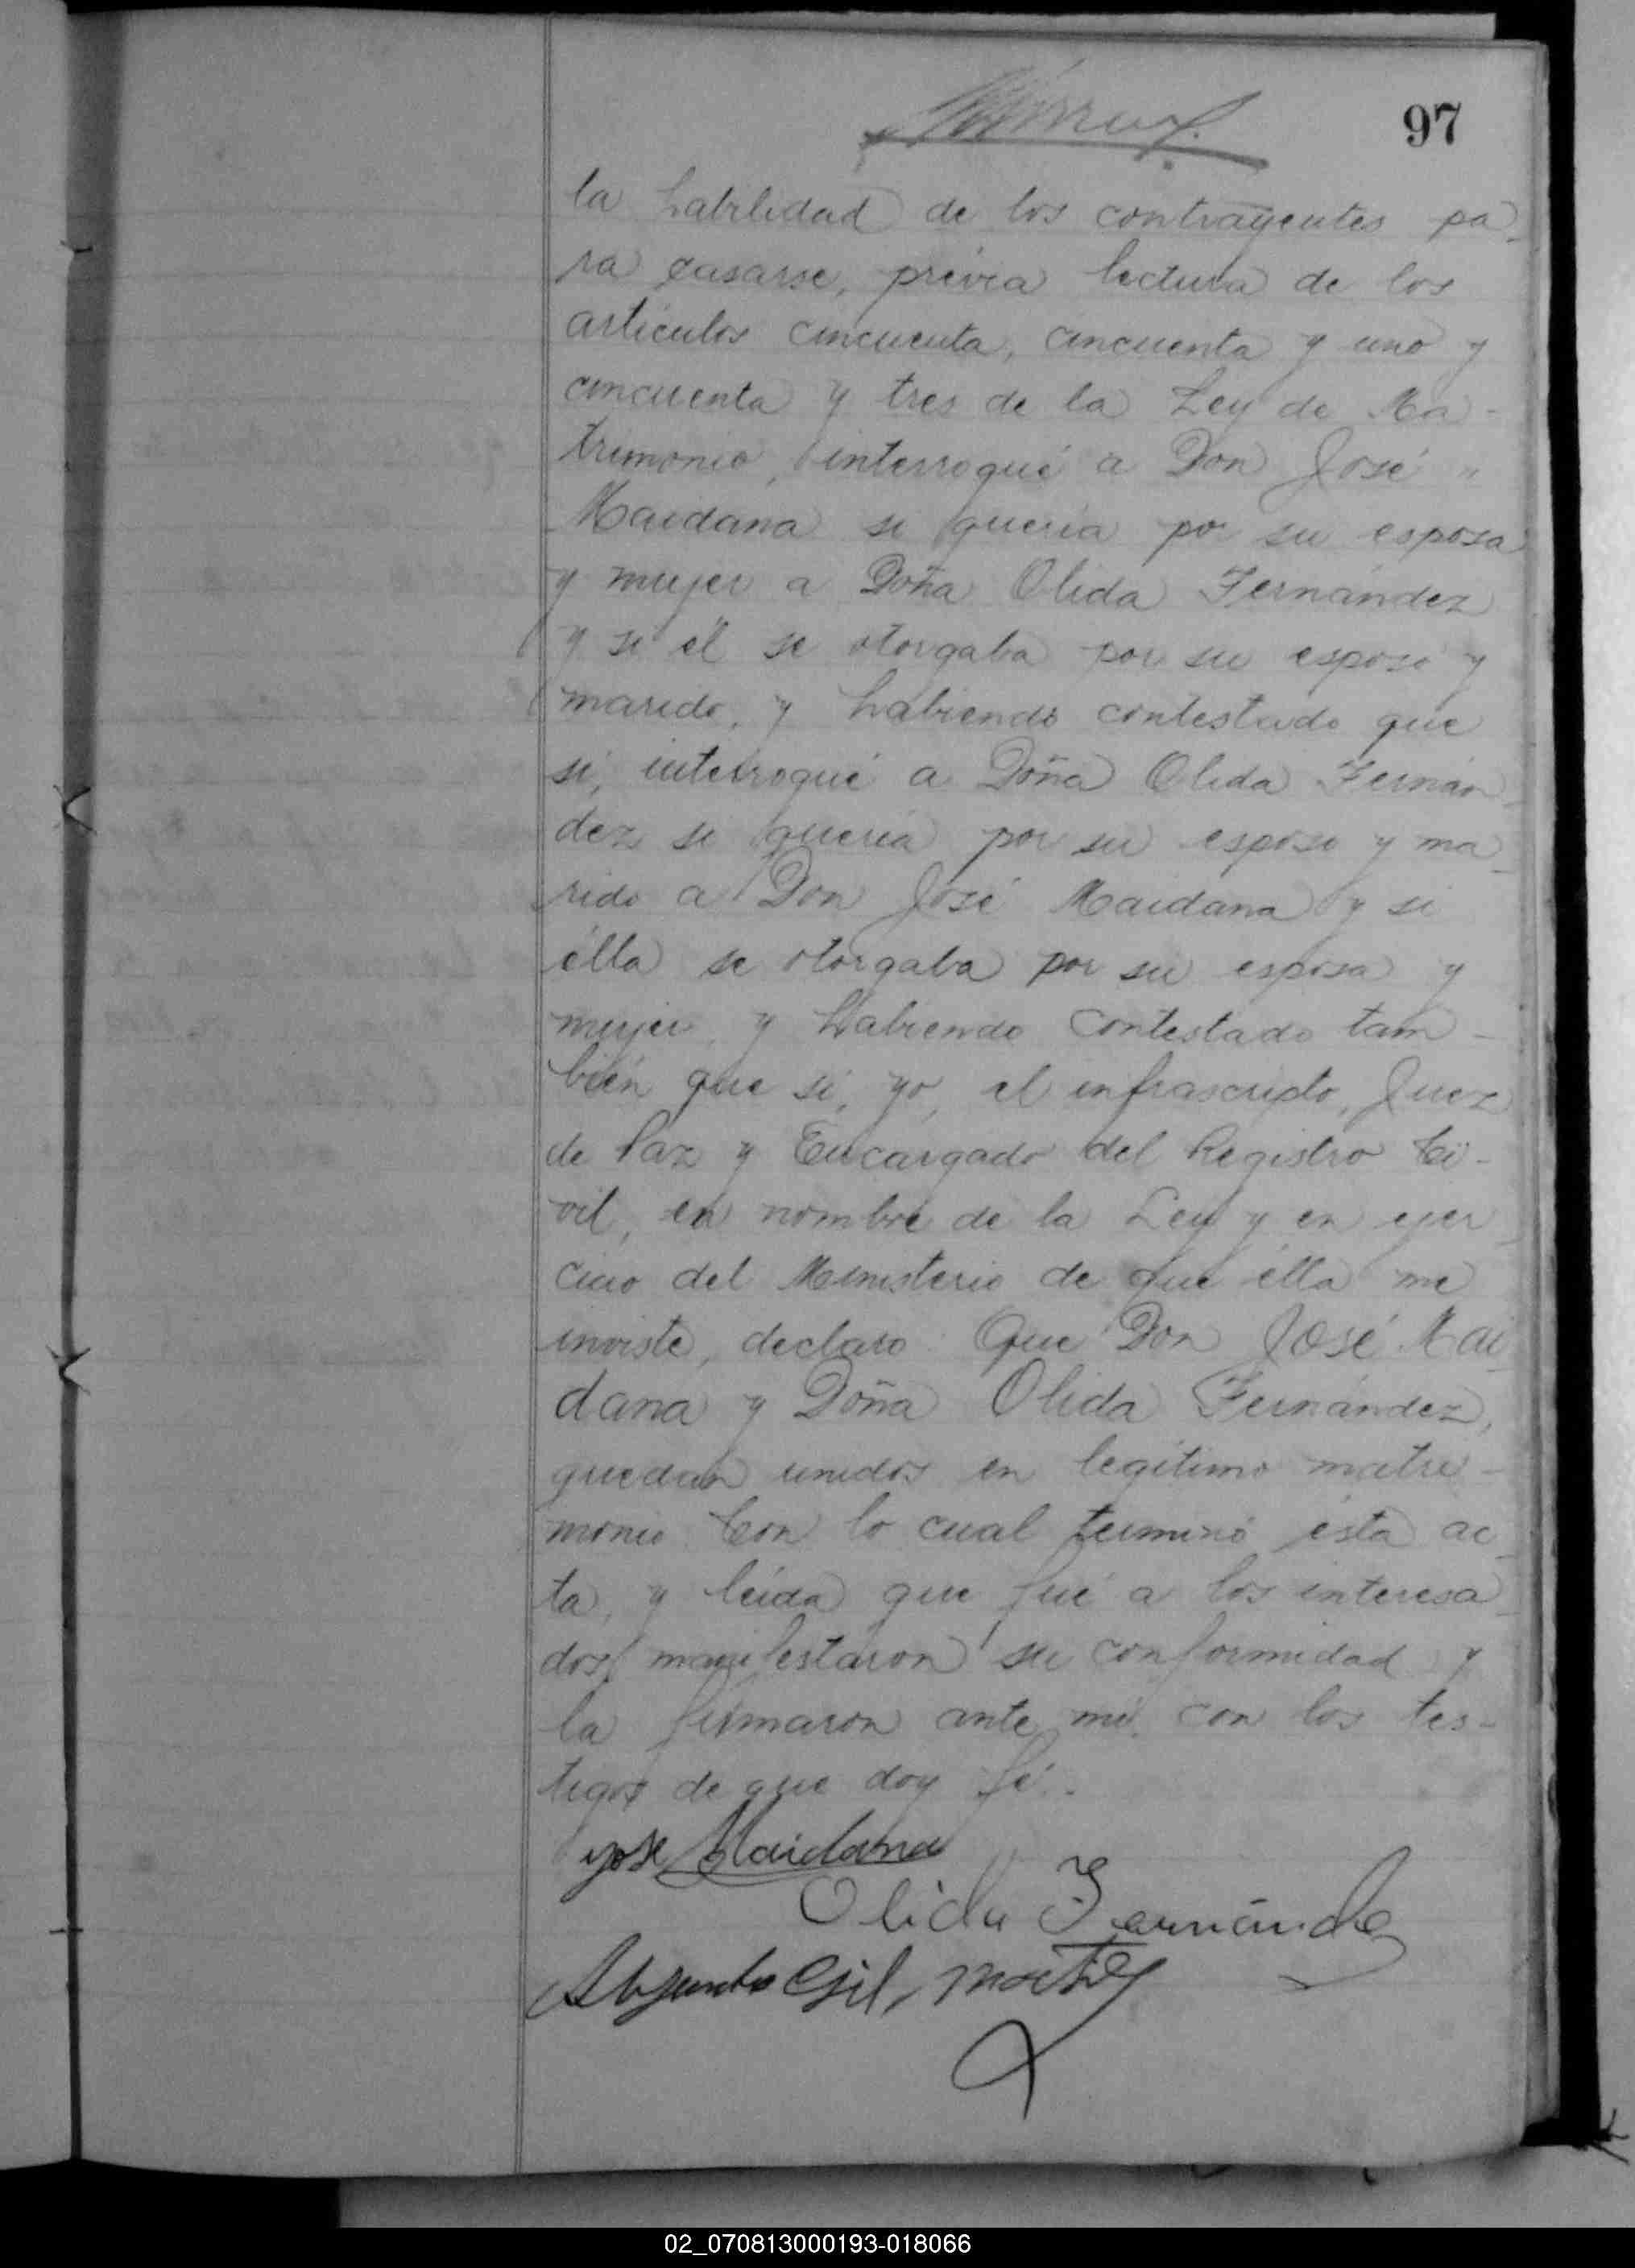 97
la habilidad de los contrayentes pa-
ra casarse, prévia lectura de los
artículos cincuenta, cincuenta y uno y
cincuenta y tres de la Ley de Ma-
trimonio, interrogué a Don José "
Maidana si quería por su esposa
y mujer a Doña Olida Fernández
y si él se otorgaba por su esposo y
marido, y habiendo contestado que
sí, interrogué a Doña Olida Fernán-
dez si quería por su esposo y ma-
rido a Don José Maidana y si
élla se otorgaba por su esposa y
mujer, y habiendo contestado tam-
bién que sí, yo, el infrascripto, Juez
de Paz y Encargado del Registro Ci-
vil, en nombre de la Ley y en ejer-
cicio del Ministerio de que élla me
inviste, declaro: Que Don José Mai-
dana y Doña Olida Fernández,
quedan unidos en legítimo matri-
monio. Con lo cual terminó ésta ac-
ta, y leída que fué a los interesa-
dos, manifestaron su conformidad y
la firmaron ante mí, con los tes-
tigos de que doy fé.
José Maidana
Olida Fernández
Gil,
02_070813000193-018066